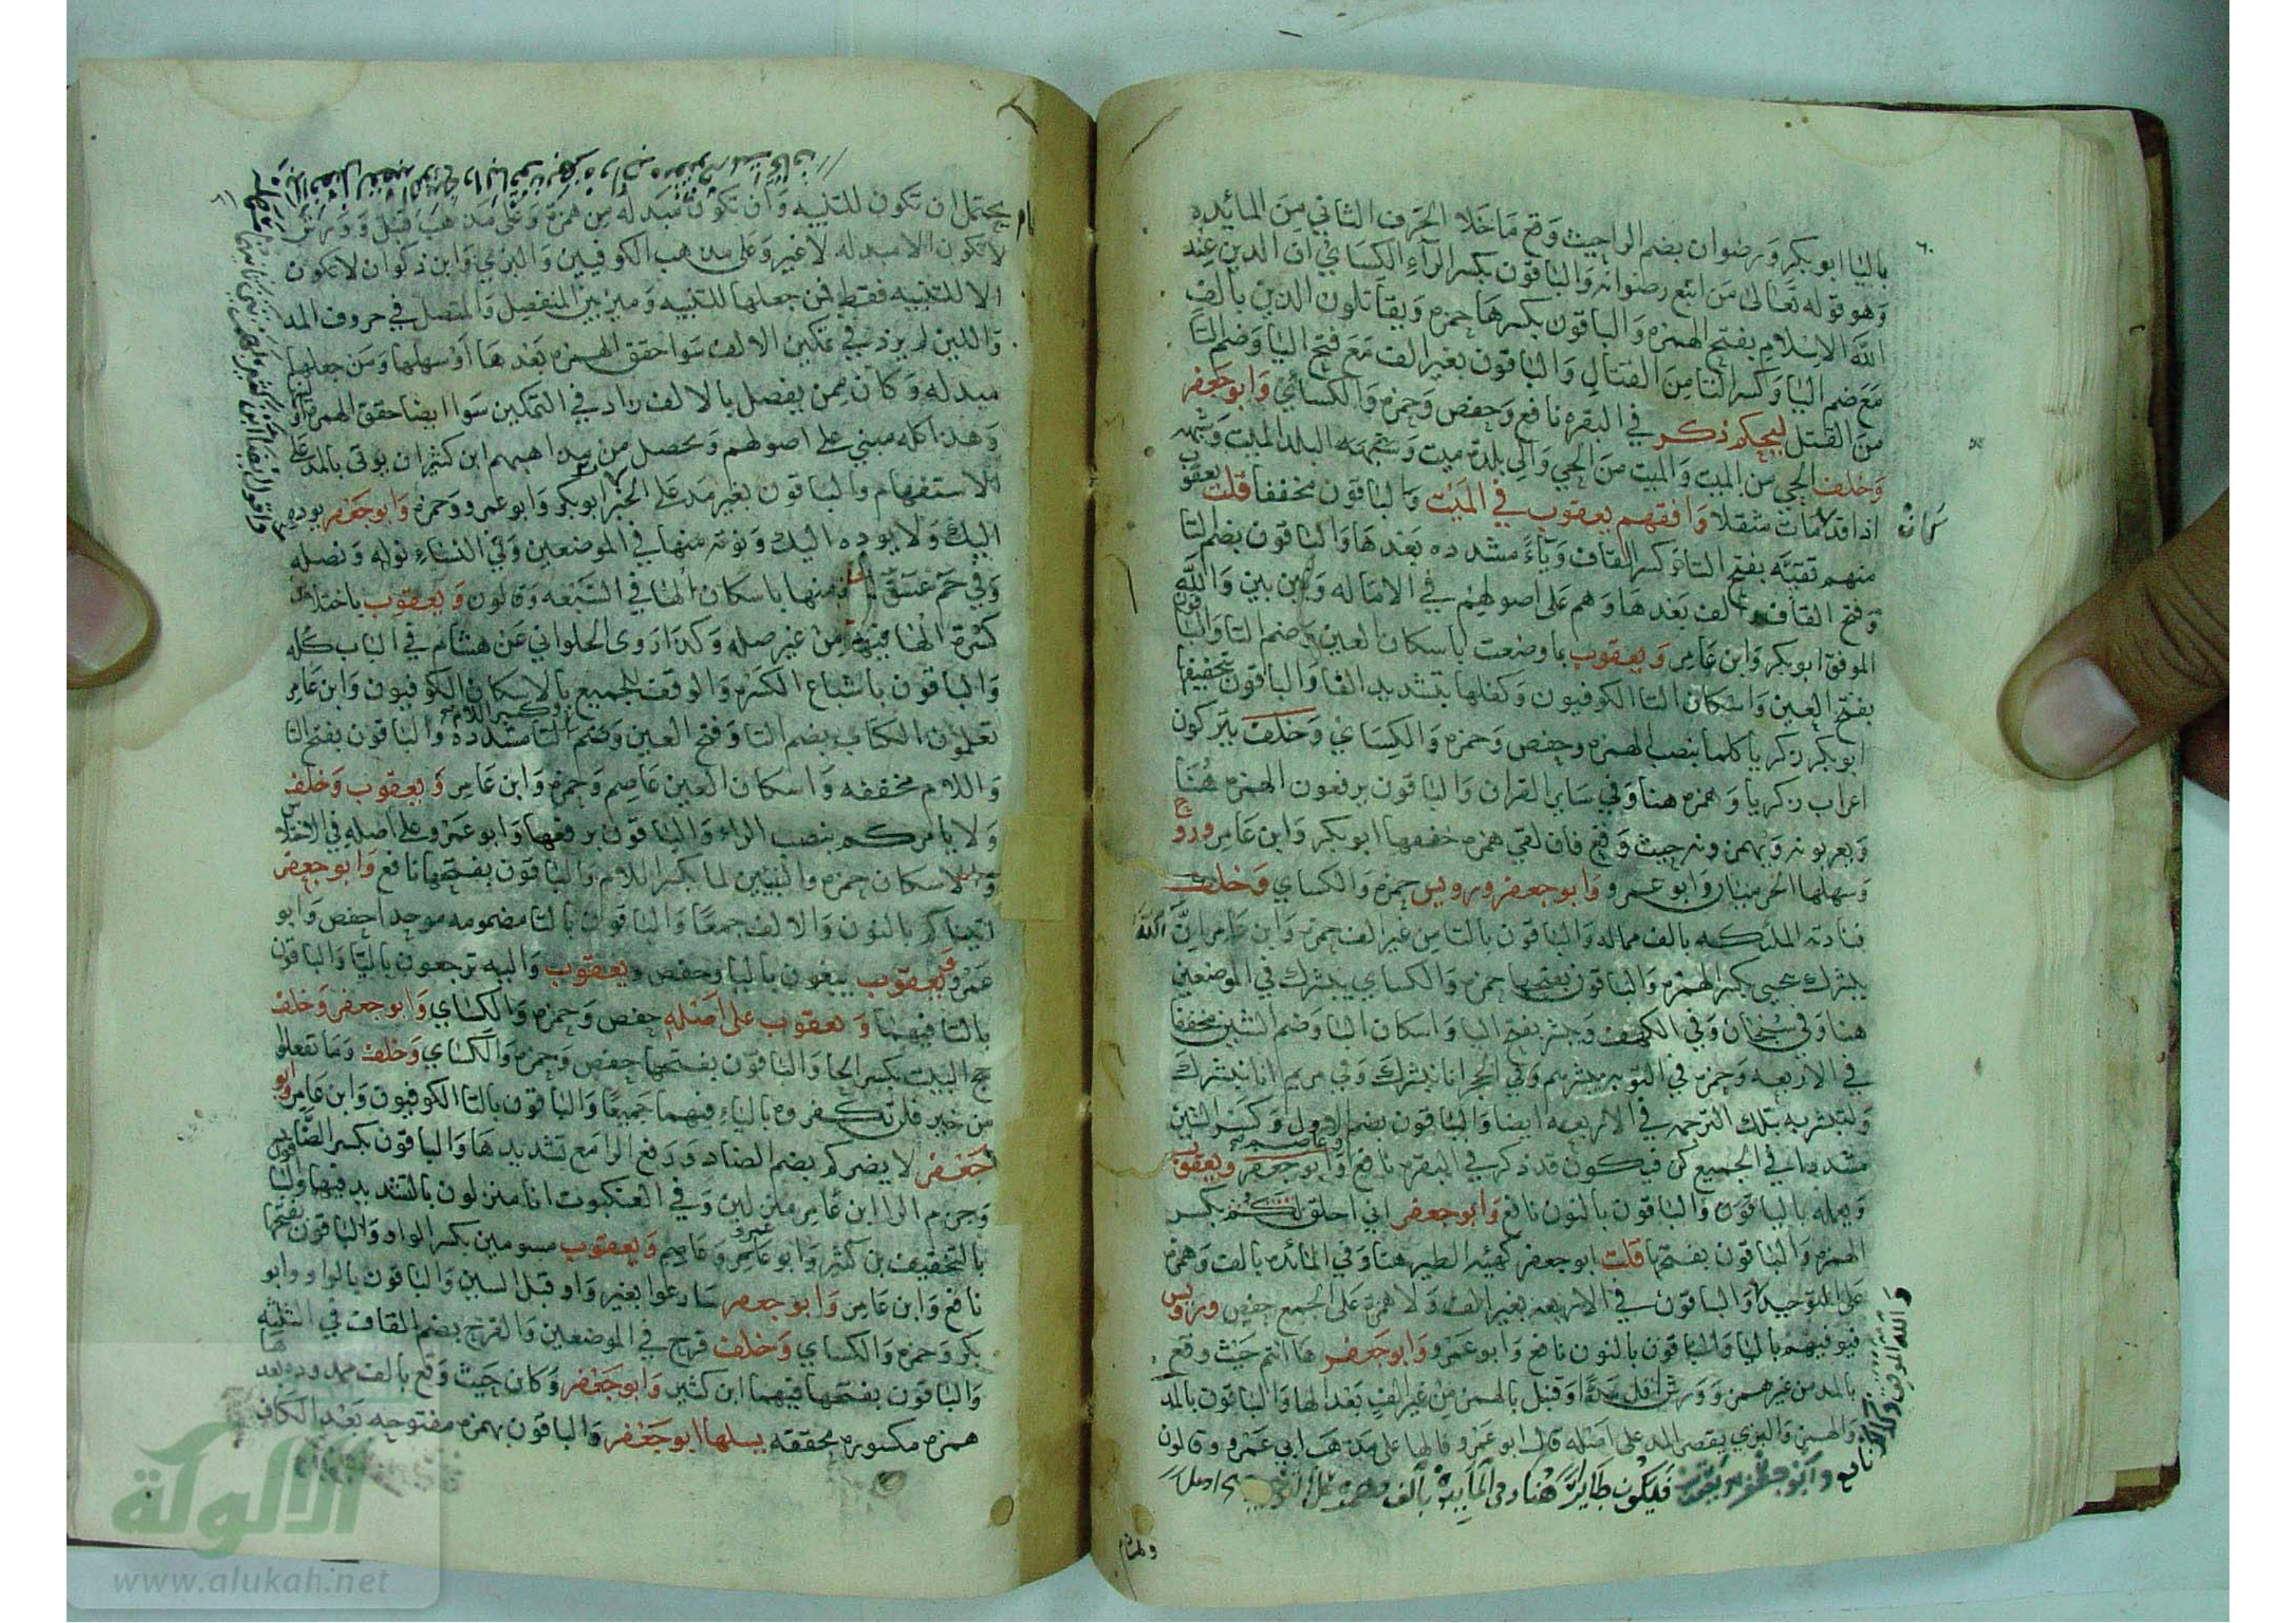 باليا ابو بكر ورضوان بضم الراحيث وقع ماخلا الحرف الثاني من المائده
وهو قوله تعالى من اتبع رضوانه والباقون بكسر الرآء الكسائي ان الدين عند
الله الاسلام بفتح الهمزه والباقون بكسرها حمزه ويقاتلون الذين بالف
مع ضم اليا وكسر التا من القتال والباقون بغير الف مع فتح اليا وضم التا
من القتل ليحكم ذكر في البقره نافع وحفص وحمزه والكسائي وابو جعفر
وخلف الحي من الميت والميت من الحي والى بلدة ميت وشبهه البلد الميت وشبهه
اذا قد مات مثقلا وافقهم يعقوب في الميت والباقون مخففا قلت يعقوب
منهم تقيَّه بفتح التا وكسر القاف ويآءً مشدده بعدها والباقون بضم التا
وفتح القاف والف بعدها وهم على اصولهم في الاماله وبين بين والله
الموفق ابو بكر وابن عامر ويعقوب بما وضعت باسكان العين وضم التا والباقون
بفتح العين واسكان التا الكوفيون وكفلها بتشديد الفا والباقون بتخفيفها
ابو بكر زكريا كلما بنصب الهمزه وحفص وحمزه والكسائي وخلف يتركون
اعراب زكريا وهمزه هنا وفي ساير القران والباقون يرفعون الهمزه هنا
ويعربونه ويهمزونه حيث وقع فان لقي همزه حققها ابو بكر وابن عامر وروح
وسهلها الحرميان وابو عمرو وابو جعفر ورويس حمزه والكساي وخلف
فنادته الملئكه بالف مماله والباقون بالتا من غير الف حمزه وابن عامر انّ الله
يبشرك بيحيى بكسر الهمزه والباقون بفتحها حمزه والكساي يبشرك في الموضعين
هنا وفي سبحان وفي الكهف ويبشر بفتح اليا واسكان البا وضم الشين مخففا
في الاربعه وحمزه في التوبه يبشرهم وفي الحجر انا نبشرك وفي مريم انا نبشرك
ولتبشر به بتلك الترجمه في الاربعه ايضا والباقون بضم الاول وكسر الشين
مشددا في الجميع كن فيكون قد ذكر في البقره نافع وعاصم وابو جعفر ويعقوب
ويعلمه باليا والباقون بالنون نافع وابو جعفر اني اخلق لكم بكسر
الهمزه والباقون بفتحها قلت ابو جعفر كهيئه الطير هنا وفي المائده بالف وهمزه
على التوحيد والباقون في الاربعه بغير الف ولا همزه على الجمع حفص ورويس
فيوفيهم باليا والباقون بالنون نافع وابو عمرو وابو جعفر ها انتم حيث وقع
بالمد من غير همز وورش اقل مدا وقنبل بالهمز من غير الف بعد الها والباقون بالمد
والهمز والبزي يقصر المد على اصله قال ابو عمرو فالها على مذهب ابي عمرو وقالون
نافع وابو جعفر ويعقوب فيكون طايرًا هنا وفي المايدة بالف وهمزة على
والله الموفق
وهشام
يحتمل ان تكون للتنبيه وان تكون مبدله من همزه وعلى مذهب قنبل وورش
لا تكون الا مبدله لا غير وعلى مذهب الكوفيين والبزي وابن ذكوان لا تكون
الا للتنبيه فقط فمن جعلها للتنبيه وميز بين المنفصل والمتصل في حروف المد
واللين لم يزد في تمكين الالف سوا حقق الهمزه بعدها او سهلها ومن جعلها
مبدله وكان ممن يفصل بالالف زاد في التمكين سوا ايضا حقق الهمزه او لينها
وهذا كله مبني على اصولهم ومحصل من مذاهبهم ابن كثير ان يوتى بالمد على
الاستفهام والباقون بغير مد على الخبر ابو بكر وابو عمرو وحمزه وابو جعفر يوده
اليك ولا يوده اليك ونوته منها في الموضعين وفي النساء نوله ونصله
وفي حم عسق نوته منها باسكان الها في السبعه وقالون ويعقوب باختلاس
كسرة الها فيها من غير صله وكذا روى الحلواني عن هشام في الباب كله
والباقون باشباع الكسره والوقف للجميع بالاسكان الكوفيون وابن عامر
تعلمون الكتاب بضم التا وفتح العين وكسر اللام مشدده والباقون بفتح التا
واللام مخففه واسكان العين عاصم وحمزه وابن عامر ويعقوب وخلف
ولا يامركم بنصب الراء والباقون برفعها وابو عمرو على اصله في الاختلاس
والاسكان حمزه والنبيين لما بكسر اللام والباقون بفتحها نافع وابو جعفر
اتيناكم بالنون والالف جمعا والباقون بالتا مضمومه موحدا حفص وابو
عمرو ويعقوب يبغون باليا وحفص ويعقوب واليه ترجعون باليا والباقون
بالتا فيهما ويعقوب على اصله حفص وحمزه والكساي وابو جعفر وخلف
حج البيت بكسر الحا والباقون بفتحها حفص وحمزه والكساي وخلف وما تفعلوا
من خير فلن تكفروه بالياء فيهما جميعا والباقون بالتا الكوفيون وابن عامر وابو
جعفر لا يضركم بضم الضاد ورفع الرا مع تشديدها والباقون بكسر الضاد
وجزم الرا ابن عامر منزلين وفي العنكبوت انا منزلون بالتشديد فيهما والباقون
بالتخفيف بن كثير وابو عمرو وعاصم ويعقوب مسومين بكسر الواو والباقون بفتحها
نافع وابن عامر وابو جعفر سارعوا بغير واو قبل السين والباقون بالواو وابو
بكر وحمزه والكساي وخلف قرح في الموضعين والقرح بضم القاف في الثلثه
والباقون بفتحها فيهما ابن كثير وابو جعفر وكاين حيث وقع بالف ممدوده بعدها
همزه مكسوره محققه يسهلها ابو جعفر والباقون بهمزه مفتوحه بعد الكاف
الألوكة
www.alukah.net